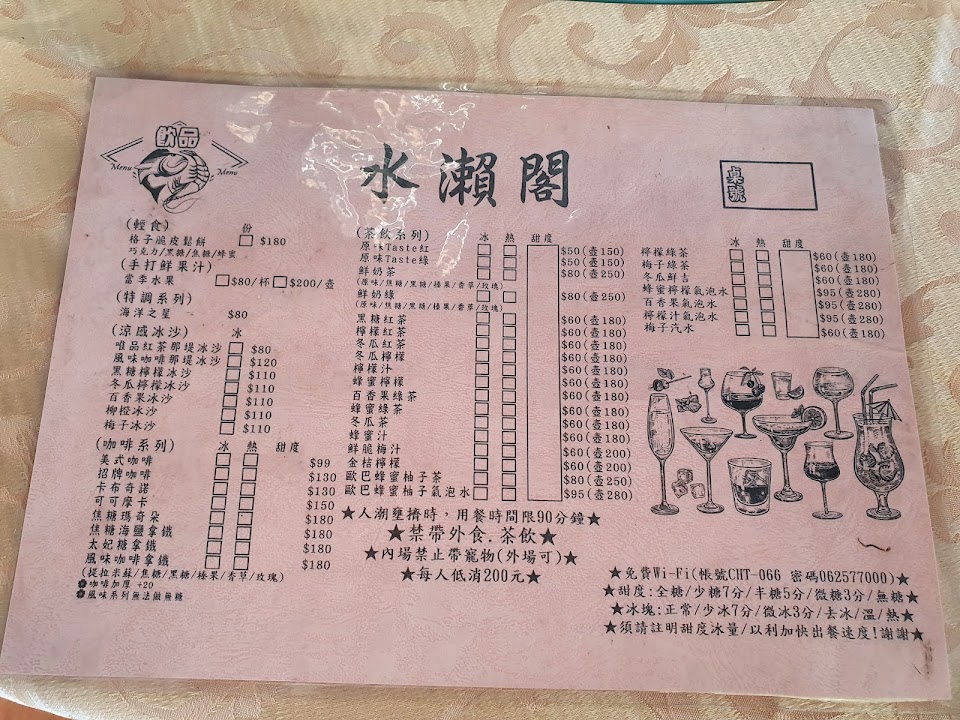 飲品
Menu Menu
水瀨閣
桌號
(輕食) 份
格子脆皮鬆餅 $180
巧克力/黑糖/焦糖/蜂蜜
(手打鮮果汁)
當季水果 $80/杯 $200/壺
(特調系列)
海洋之星 $80
(涼感冰沙) 冰
唯品紅茶那堤冰沙 $80
風味咖啡那堤冰沙 $120
黑糖檸檬冰沙 $110
冬瓜檸檬冰沙 $110
百香果冰沙 $110
柳橙冰沙 $110
梅子冰沙 $110
(咖啡系列) 冰 熱 甜度
美式咖啡 $99
招牌咖啡 $130
卡布奇諾 $130
可可摩卡 $150
焦糖瑪奇朵 $180
焦糖海鹽拿鐵 $180
太妃糖拿鐵 $180
風味咖啡拿鐵 $180
(提拉米蘇/焦糖/黑糖/榛果/香草/玫瑰)
咖啡加厚 +20
風味系列無法做無糖
(茶飲系列) 冰 熱 甜度
原味Taste紅 $50(壺150)
原味Taste綠 $50(壺150)
鮮奶茶 $80(壺250)
(原味/焦糖/黑糖/榛果/香草/玫瑰)
鮮奶綠 $80(壺250)
(原味/焦糖/黑糖/榛果/香草/玫瑰)
黑糖紅茶 $60(壺180)
檸檬紅茶 $60(壺180)
冬瓜紅茶 $60(壺180)
冬瓜檸檬 $60(壺180)
檸檬汁 $60(壺180)
蜂蜜檸檬 $60(壺180)
百香果綠茶 $60(壺180)
蜂蜜綠茶 $60(壺180)
冬瓜茶 $60(壺180)
蜂蜜汁 $60(壺180)
鮮脆梅汁 $60(壺200)
金桔檸檬 $60(壺200)
歐巴蜂蜜柚子茶 $80(壺250)
歐巴蜂蜜柚子氣泡水 $95(壺280)
★人潮壅擠時，用餐時間限90分鐘★
★禁帶外食.茶飲★
★內場禁止帶寵物(外場可)★
★每人低消200元★
冰 熱 甜度
檸檬綠茶 $60(壺180)
梅子綠茶 $60(壺180)
冬瓜鮮吉 $60(壺180)
蜂蜜檸檬氣泡水 $95(壺280)
百香果氣泡水 $95(壺280)
檸檬汁氣泡水 $95(壺280)
梅子汽水 $60(壺180)
★免費Wi-Fi(帳號CHT-066 密碼062577000)★
★甜度:全糖/少糖7分/半糖5分/微糖3分/無糖★
★冰塊:正常/少冰7分/微冰3分/去冰/溫/熱★
★須請註明甜度冰量/以利加快出餐速度!謝謝★